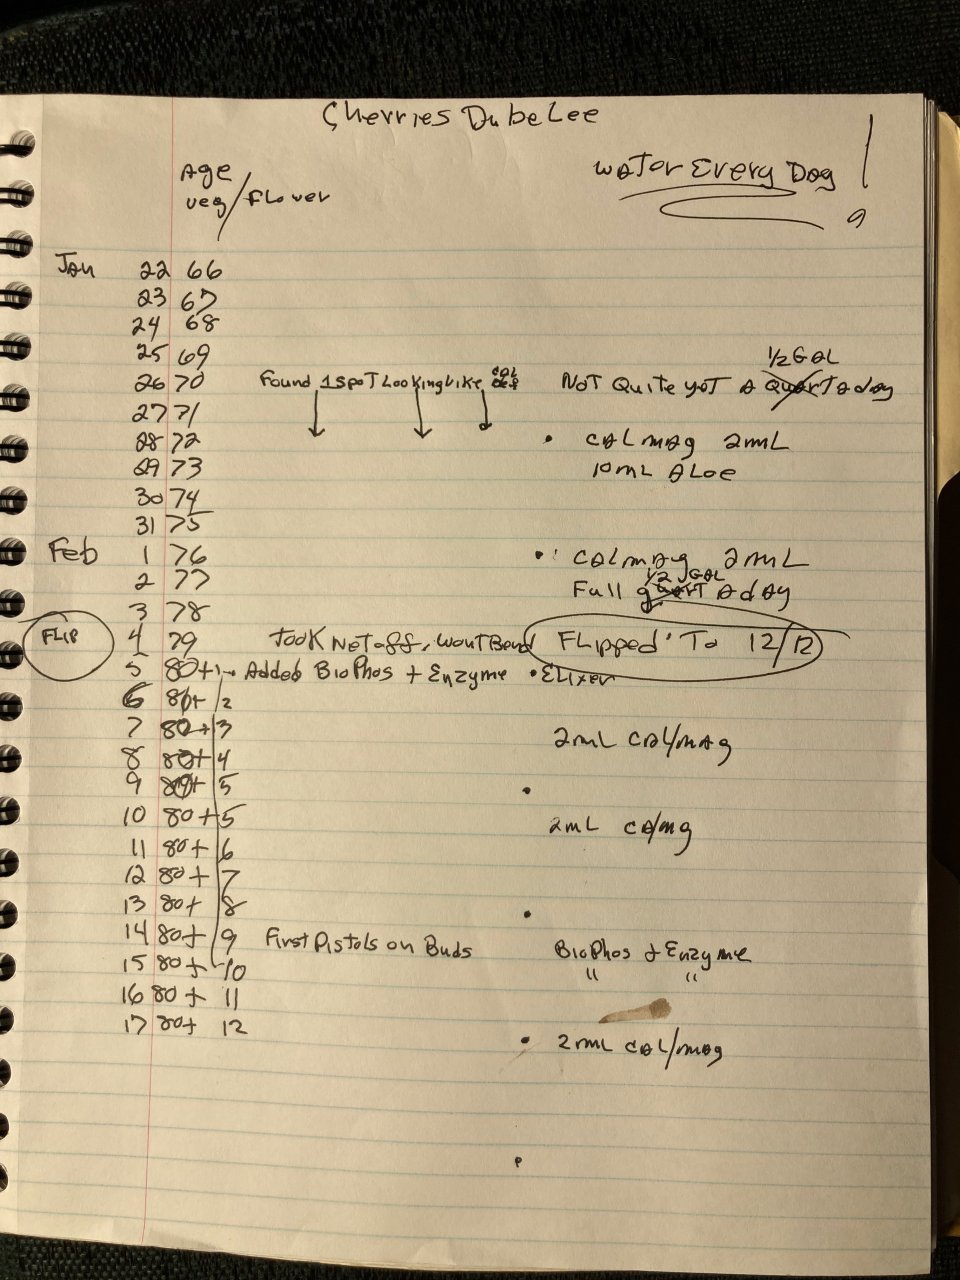 Cherries DubeLee
Age
veg/Flower
Water Every Day !
Jan 22 66
23 67
24 68
25 69
1/2 GAL
26 70 Found 1 spot Looking Like CAL DEF Not Quite yet A Quart A day
27 71
28 72 • CALmAg 2mL
29 73 10mL ALoe
30 74
31 75
Feb 1 76 • CALmAg 2mL
1/2 GAL
2 77 Full quart A dAy
3 78
FLIP 4 79 Took Net off, wont Bend FLipped To 12/12
5 80+1 Added BioPhos + Enzyme • ELixer
6 80+ 2
7 80+ 3 2mL CAL/mAg
8 80+ 4
9 80+ 5 •
10 80+5 2mL CA/mg
11 80+ 6
12 80+ 7
13 80+ 8 •
14 80+ 9 First Pistols on Buds BioPhos + Enzyme
15 80+ 10 " "
16 80+ 11
17 80+ 12 • 2mL CAL/mAg